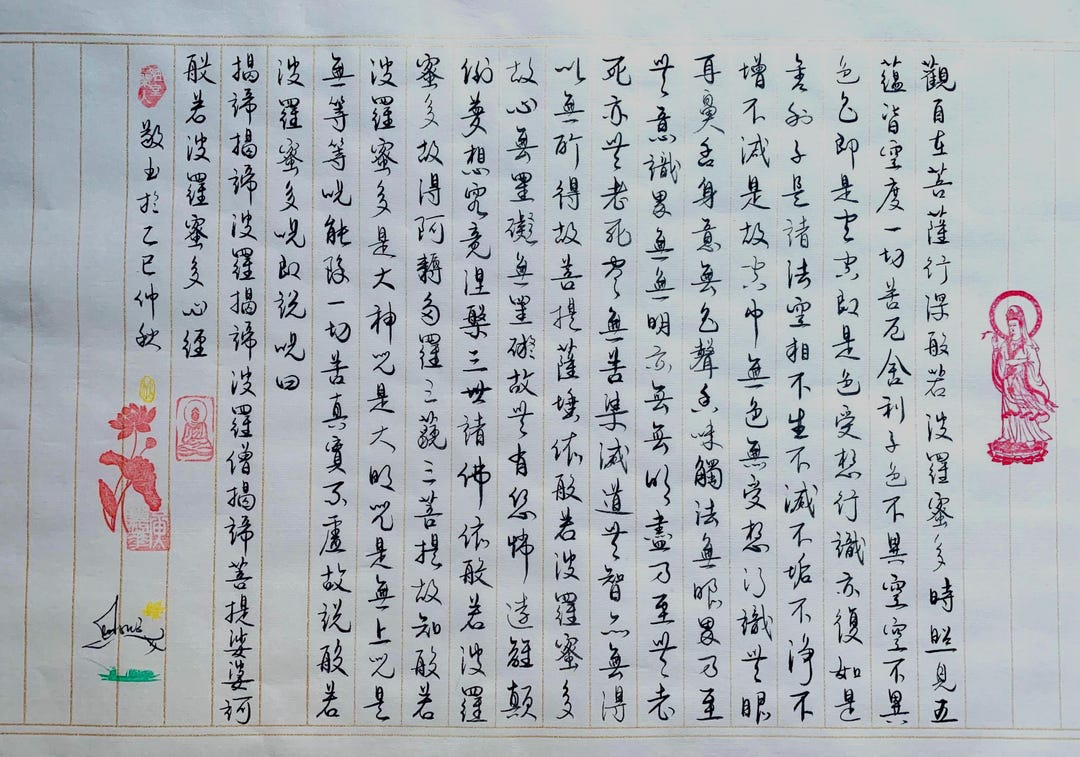 觀自在菩薩行深般若波羅蜜多時照見五
蘊皆空度一切苦厄舍利子色不異空空不異
色色即是空空即是色受想行識亦復如是
舍利子是諸法空相不生不滅不垢不淨不
增不減是故空中無色無受想行識無眼
耳鼻舌身意無色聲香味觸法無眼界乃至
無意識界無無明亦無無明盡乃至無老
死亦無老死盡無苦集滅道無智亦無得
以無所得故菩提薩埵依般若波羅蜜多
故心無罣礙無罣礙故無有恐怖遠離顛
倒夢想究竟涅槃三世諸佛依般若波羅
蜜多故得阿耨多羅三藐三菩提故知般若
波羅蜜多是大神咒是大明咒是無上咒是
無等等呪能除一切苦真實不虛故說般若
波羅蜜多呪即說呪曰
揭諦揭諦波羅揭諦波羅僧揭諦菩提娑婆訶
般若波羅蜜多心經
敬書於乙巳仲秋